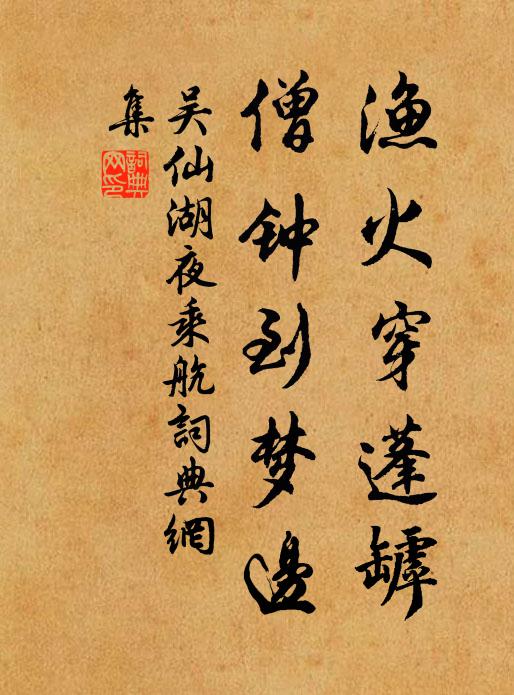 渔火穿蓬罅
僧钟到梦邊
吴仙湖夜乘航詞典網
集
詞典
网印